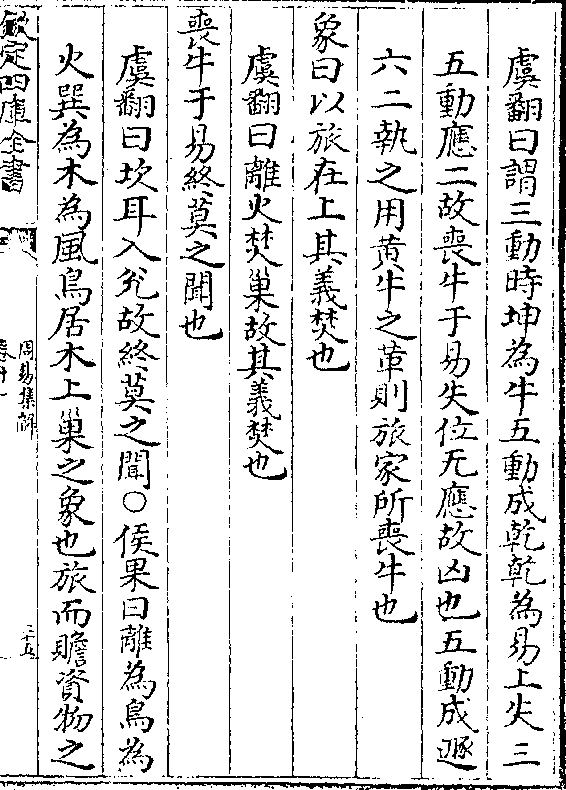 虞翻曰謂三動時坤為牛五動成乾乾為易上失三
五動應二故喪牛于易失位无應故凶也五動成遯
六二執之用黄牛之革則旅家所喪牛也
象曰以旅在上其義焚也
虞翻曰離火焚巢故其義焚也
喪牛于易終莫之聞也
虞翻曰坎耳入兊故終莫之聞○侯果曰離為鳥為
火巽為木為風鳥居木上巢之象也旅而贍資物之
欽定四庫全書
周易集解
卷十一
三十五